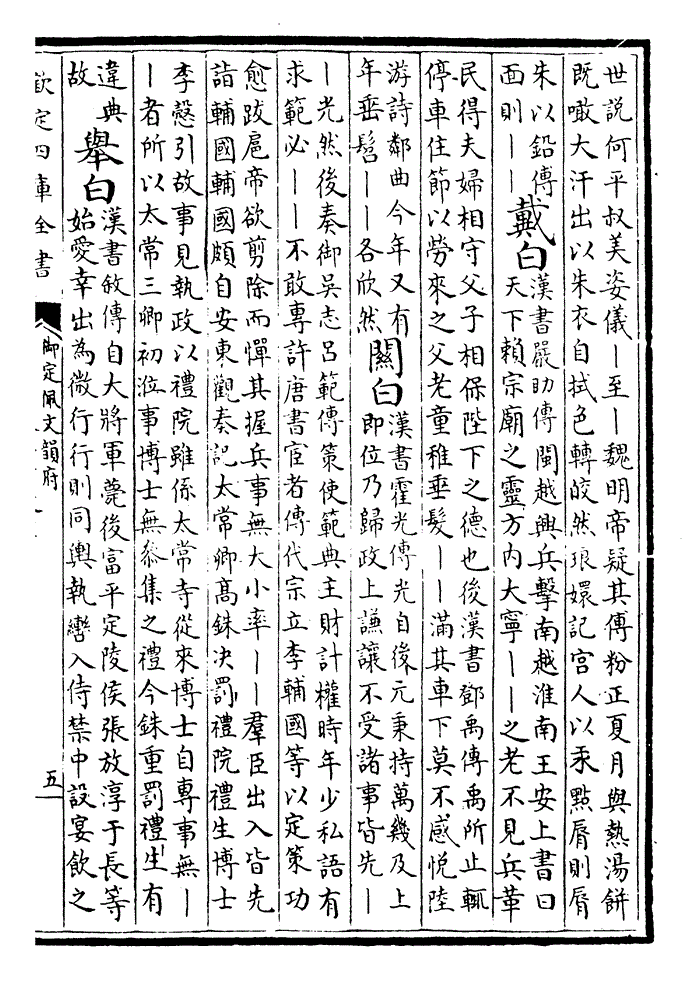 世說何平叔美姿儀丨至丨魏明帝疑其傅粉正夏月與熱湯餅
既噉大汗出以朱衣自拭色轉皎然琅嬛記宫人以汞㸃脣則脣
朱以鉛傅
面則丨丨
戴白
漢書嚴助傳閩越興兵擊南越淮南王安上書曰
天下賴宗廟之靈方内大寧丨丨之老不見兵革
民得夫婦相守父子相保陛下之德也後漢書鄧禹傳禹所止輒
停車住節以勞來之父老童稚垂髮丨丨滿其車下莫不感悦陸
游詩鄰曲今年又有
年垂髫丨丨各欣然
關白
漢書霍光傳光自後元秉持萬幾及上
即位乃歸政上謙讓不受諸事皆先丨
丨光然後奏御吳志呂範傳策使範典主財計權時年少私語有
求範必丨丨不敢專許唐書宦者傳代宗立李輔國等以定策功
愈跋扈帝欲剪除而憚其握兵事無大小率丨丨羣臣出入皆先
詣輔國輔國頗自安東觀奏記太常卿髙銖决罰禮院禮生博士
李慤引故事見執政以禮院雖係太常寺從來博士自專事無丨
丨者所以太常三卿初涖事博士無叅集之禮今銖重罰禮生有
違典
故
舉白
漢書敘傳自大將軍薨後富平定陵侯張放淳于長等
始愛幸出為微行行則同輿執轡入侍禁中設宴飲之
欽定四庫全書
御定佩文韻府
五